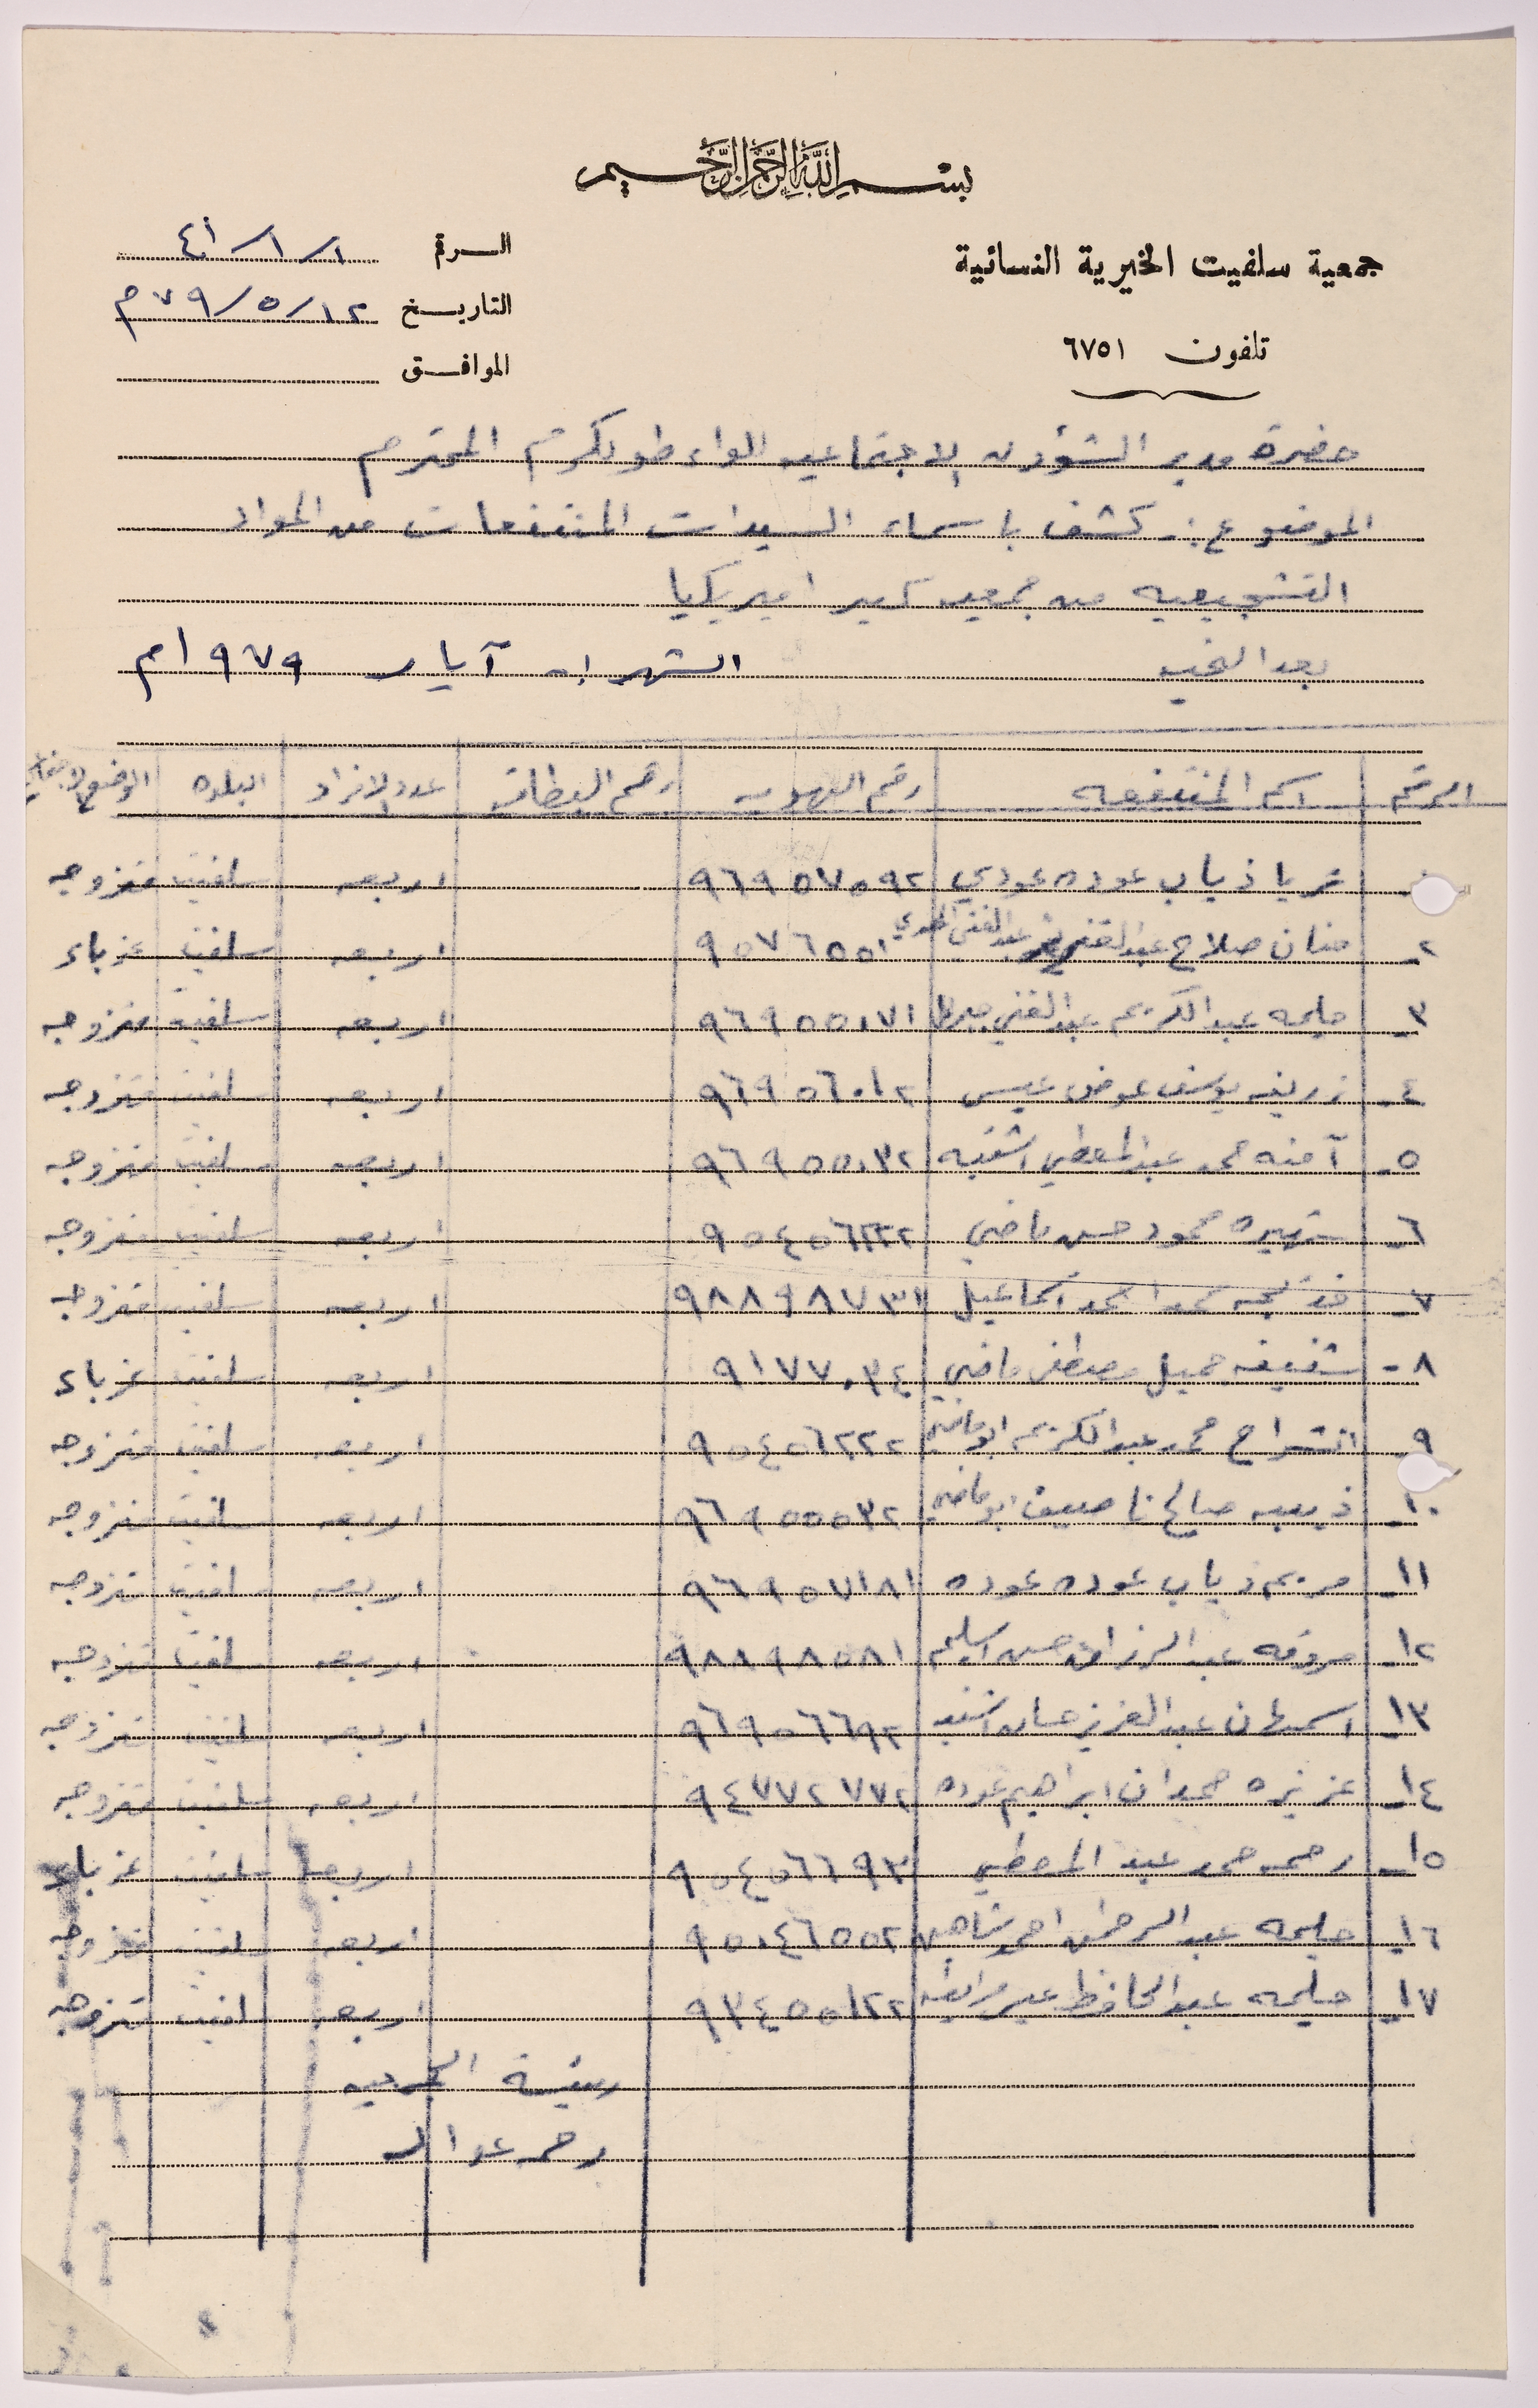 بسم الله الرحمن الرحيم
جمعية سلفيت الخيرية النسائية
تلفون ٦٧٥١
الرقم ١/١/٤١
التاريخ ١٢/٥/٧٩م
الموافق
حضرة مدير الشؤون الاجتماعيه للواء طولكرم المحترم
الموضوع :- كشف باسماء السيدات المنتفعات من المواد
التشجيعيه من جمعيه كير اميريكيا
بعد التحيه الشهر :- آيار ١٩٧٩م
الرقم اسم المنتفعه رقم الهويه رقم البطاقه عدد الافراد البلده الوضع الاجتماعي
ثريا ذياب عوده عودي ٩٦٩٥٧٥٩٢ اربعه سلفيت متزوجه
٢- حنان صلاح عبد الغني ٩٥٧٦٥٥١ اربعه سلفيت عزباء
٣- حليمه عبد الكريم عبد الغني ٩٦٩٥٥٠٧١ اربعه سلفيت متزوجه
٤- زريفه يوسف عوض عيسى ٩٦٩٥٦٠١٢ اربعه سلفيت متزوجه
٥- آمنه محمد عبد المعطي اشتيه ٩٦٩٥٥٠٣٢ اربعه سلفيت متزوجه
٦- شهيره محمود حسن ماضي ٩٥٤٥٦٢٢٢ اربعه سلفيت متزوجه
٧- خديجه محمد احمد اسماعيل ٩٨٨٩٨٧٣١ اربعه سلفيت متزوجه
٨- شفيقه جميل مصطفى ماضي ٩١٧٧٠٣٤ اربعه سلفيت عزباء
٩- انشراح محمد عبد الكريم ابو ماضي ٩٥٤٥٦٢٢٢ اربعه سلفيت متزوجه
١٠- ذيبه صالح ناصيف ابو ماضي ٩٦٩٥٥٥٣٢ اربعه سلفيت متزوجه
١١- مريم ذياب عوده عوده ٩٦٩٥٧١٨١ اربعه سلفيت متزوجه
١٢- عبد الرزاق حسن اسليم ٩٨٨٩٨٥٨١ اربعه سلفيت متزوجه
١٣- اسمهان عبد العزيز حسان اشتيه ٩٦٩٥٦٦٩٢ اربعه سلفيت متزوجه
١٤- عزيزه حمدان ابراهيم عوده ٩٤٧٧٢٧٧٢ اربعه سلفيت متزوجه
١٥- رحمه محمد عبد المعطي ٩٥٤٥٦٦٩٣ اربعه سلفيت عزباء
١٦- حليمه عبد الرحمن احمد شاهين ٩٥٠٤٦٥٥٢ اربعه سلفيت متزوجه
١٧- حليمه عبد الحافظ ٩٣٤٥٥١٢٢ اربعه سلفيت متزوجه
رئيسة الجمعيه